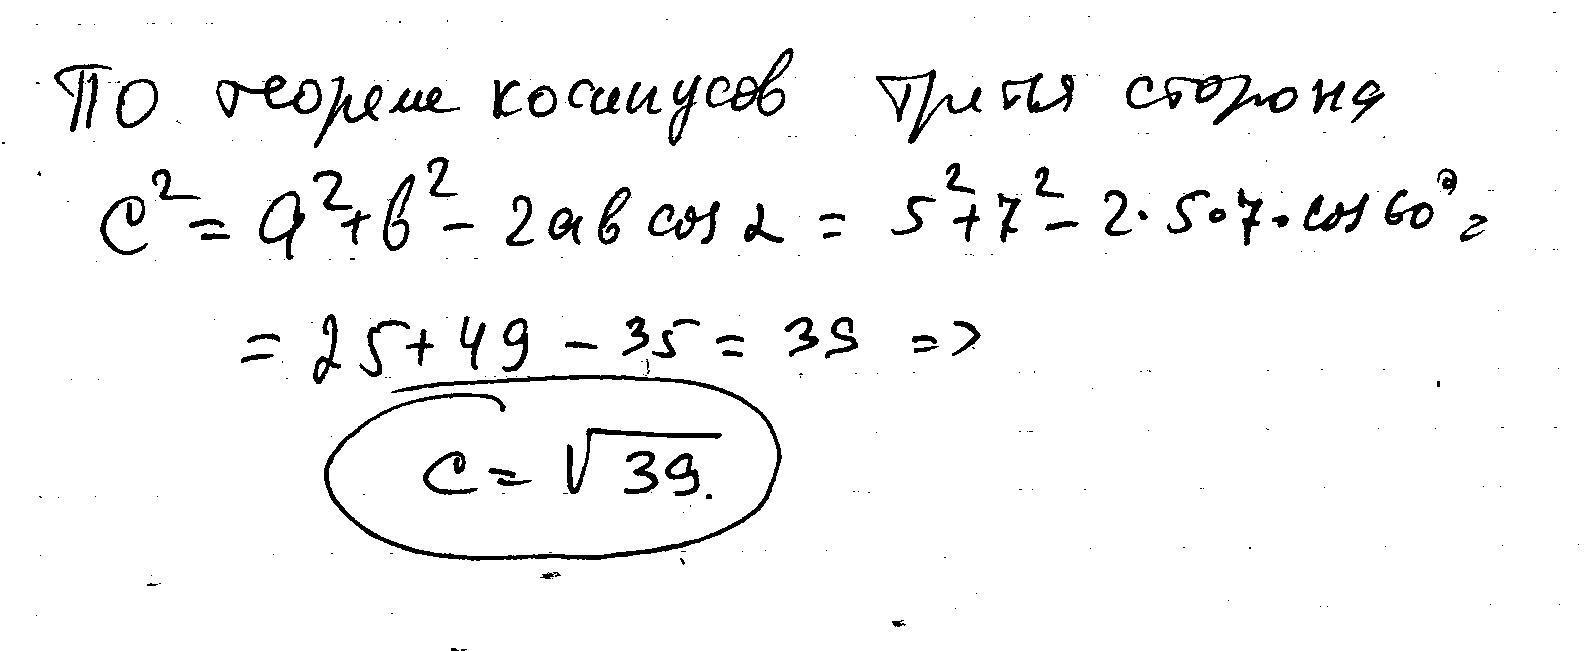 По теореме косинусов третья сторона
c² = a² + b² - 2ab cos α = 5² + 7² - 2·5·7·cos 60° =
= 25 + 49 - 35 = 39 =>
c = √39.